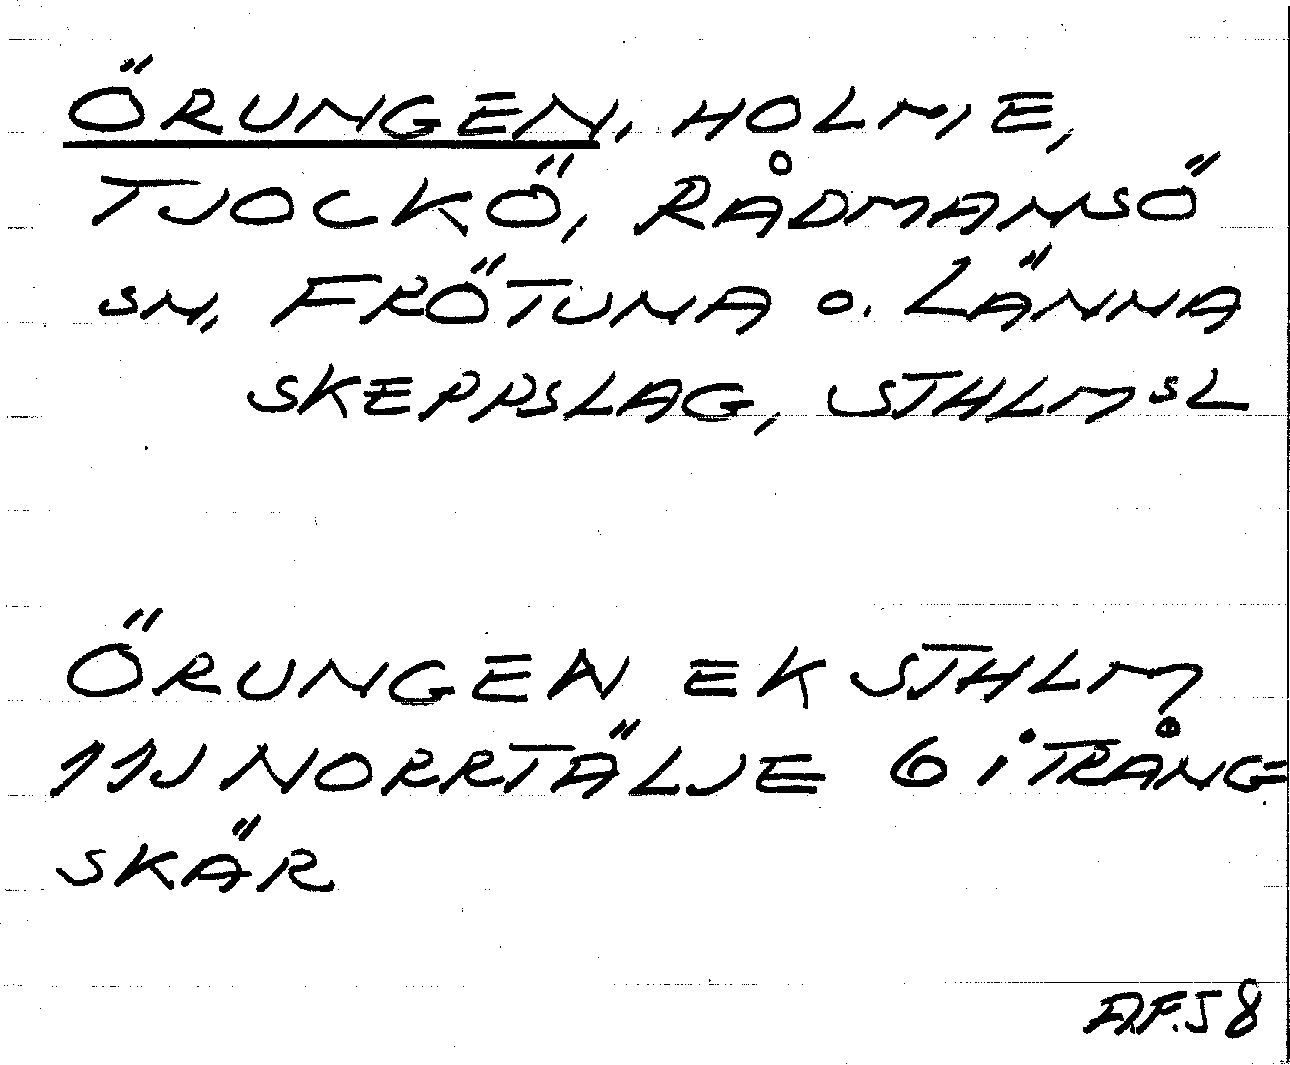 ÖRUNGEN, HOLME,
TJOCKÖ, RÅDMANSÖ
SN, FRÖTUNA O. LÄNNA
SKEPPSLAG, STHLMS L
ÖRUNGEN EK STHLM
11J NORRTÄLJE 6 i TRÅNG
SKÄR
A.F.58